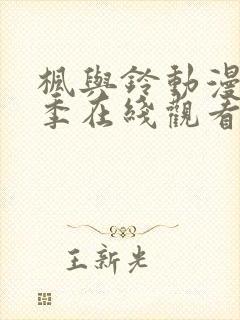 楓與鈴動漫
季在綫觀看
王新光